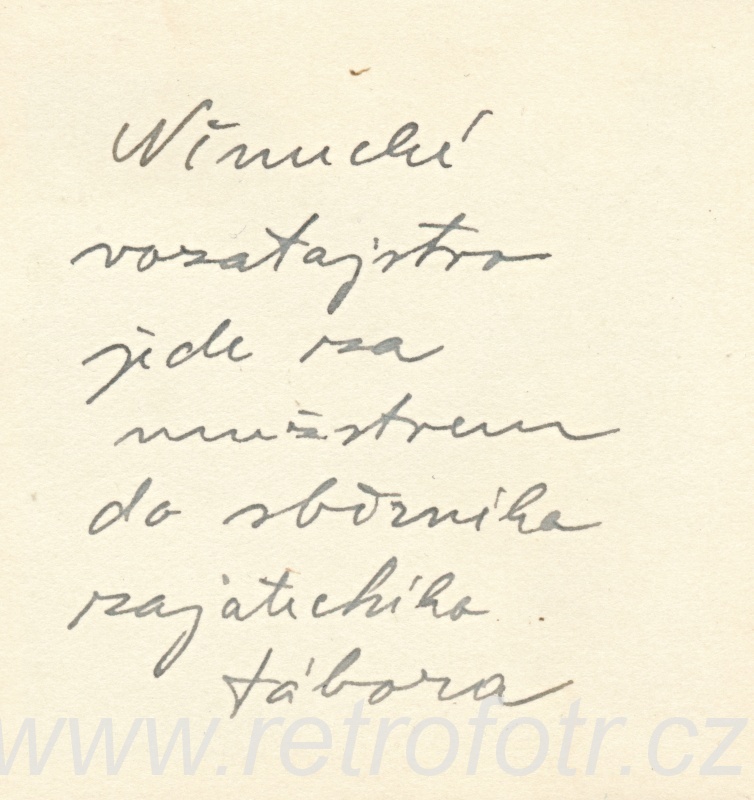 Německé
vozatajstvo
jede za
mužstvem
do sběrného
zajateckého
tábora
www.retrofotr.cz